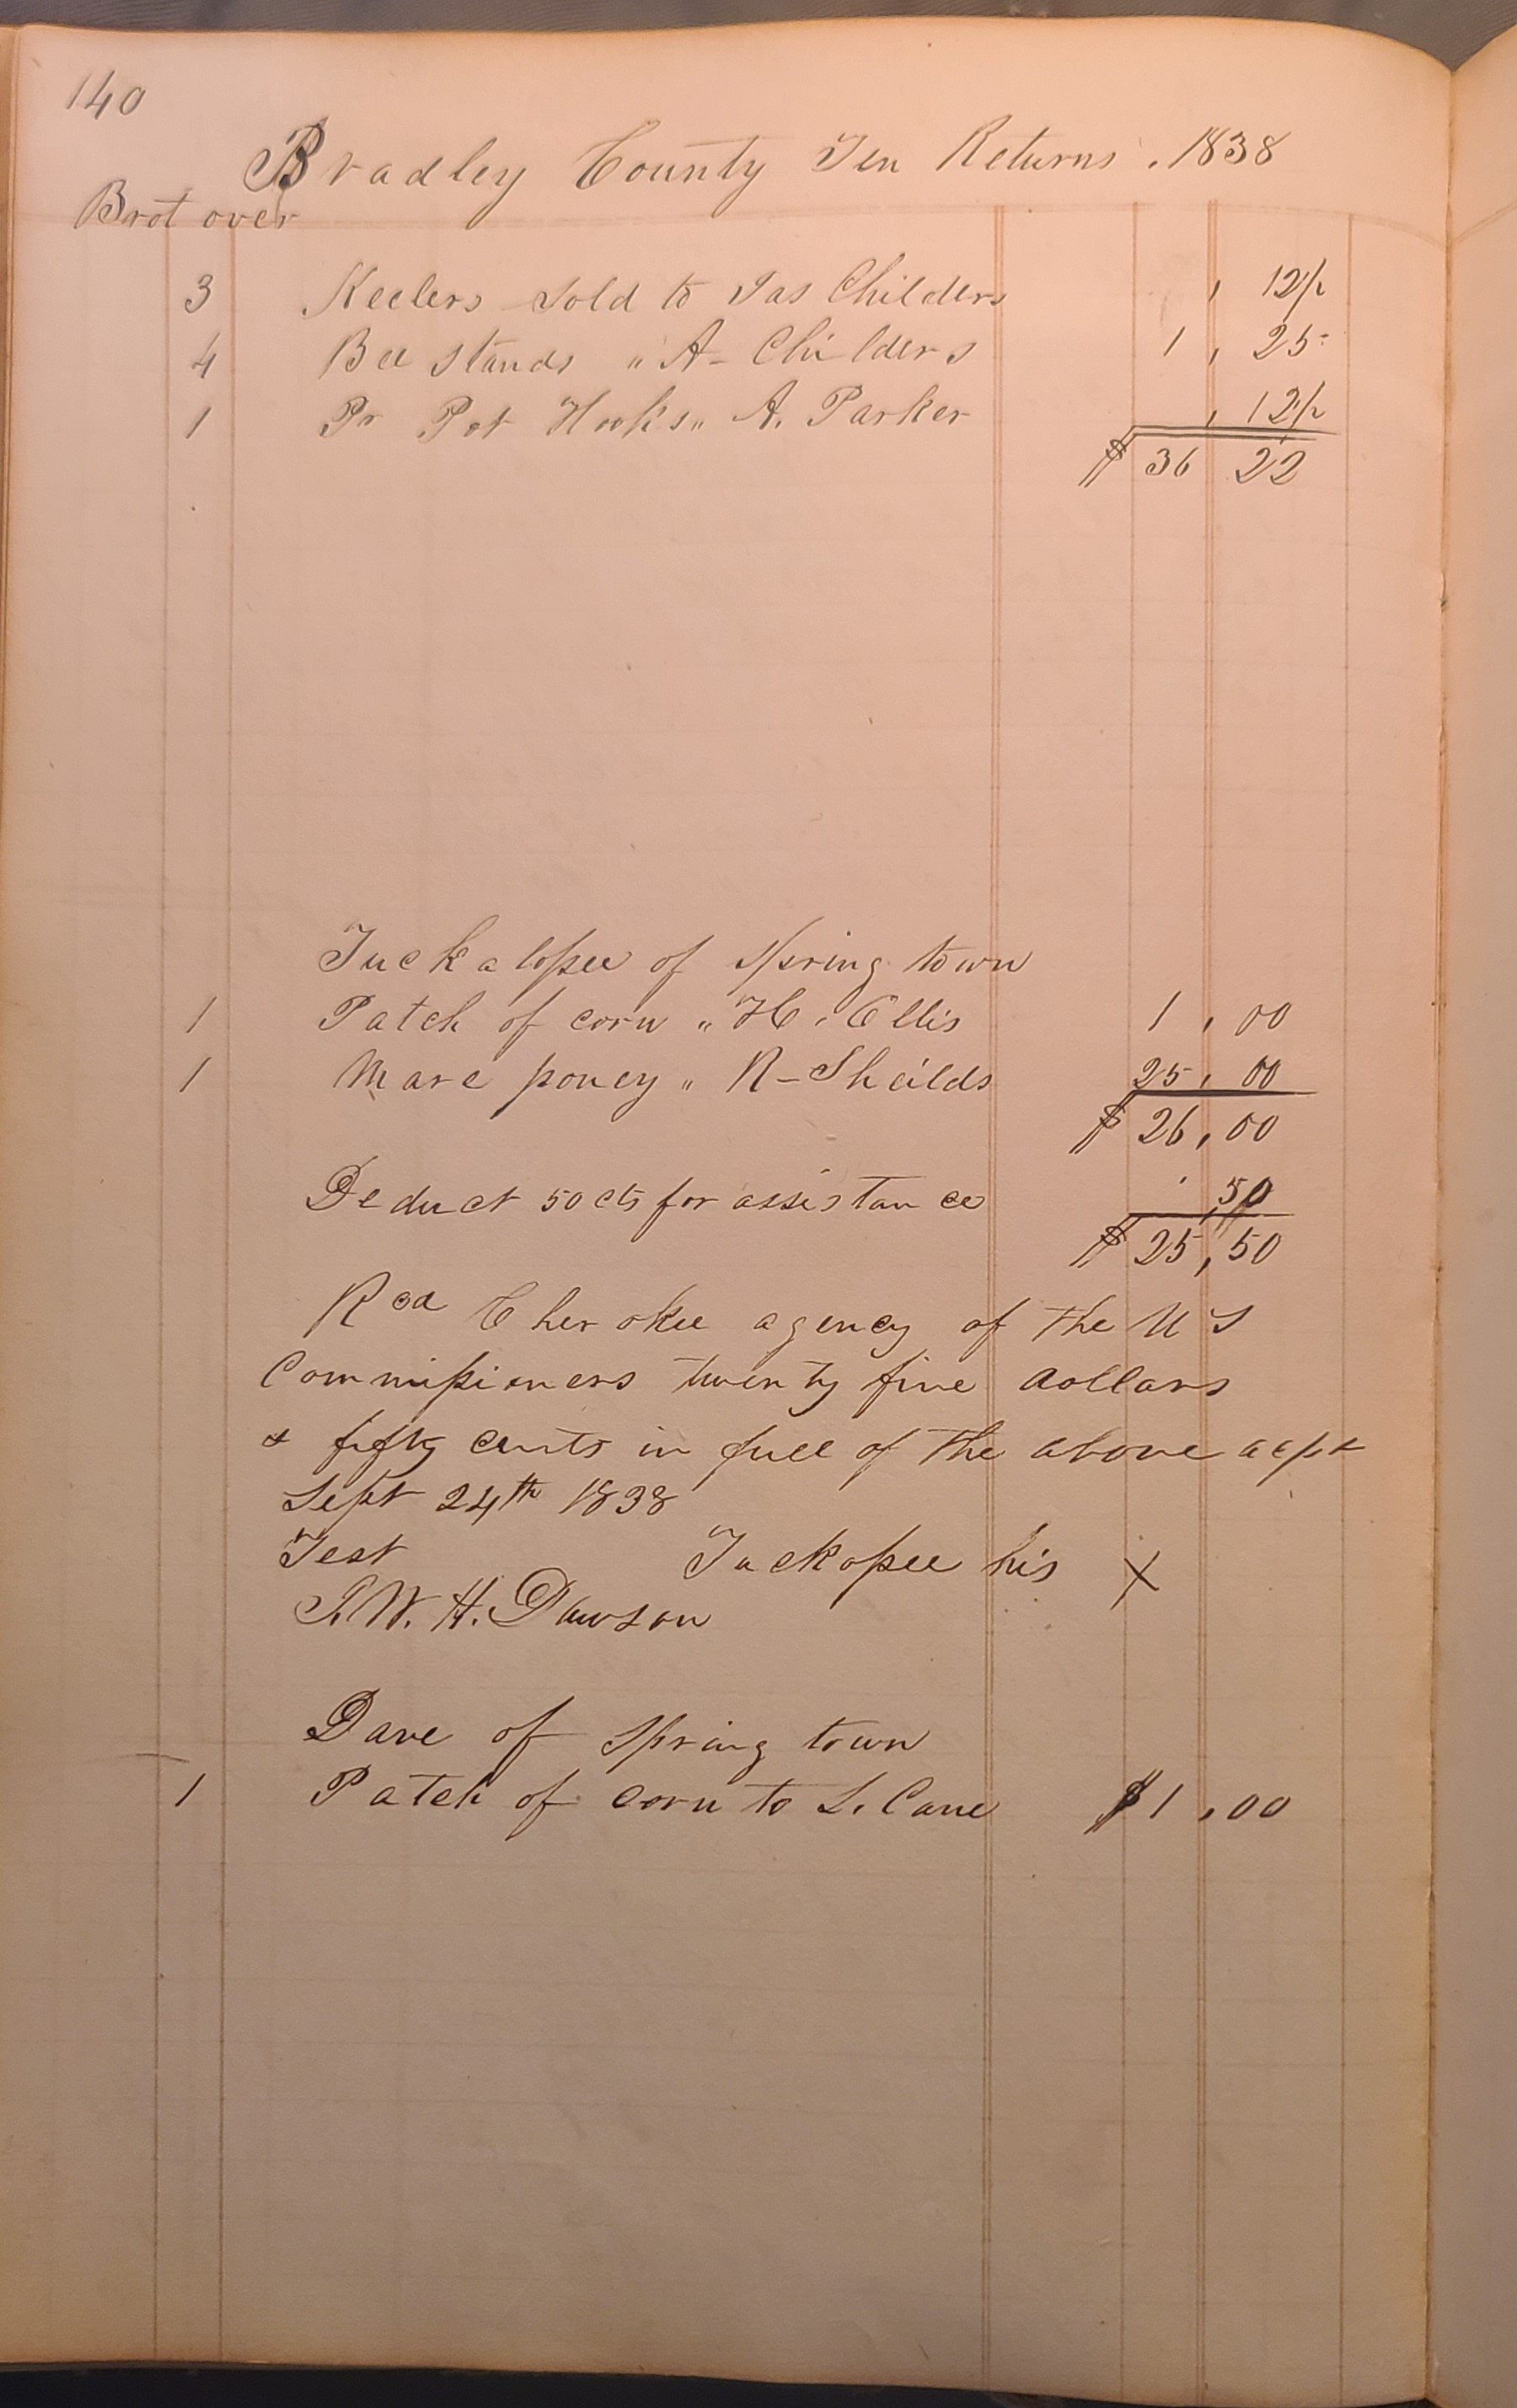 140
Bradley County Ten Returns. 1838
Brot over
3 Keelers Sold to Jas Childers , 12 1/2
4 Bee Stands " A- Childers 1, 25
1 Pr Pot Hooks " A. Parker , 12 1/2
$ 36 22
Tuckalopee of Spring town
1 Patch of corn " H. Ellis 1, 00
1 Mare poney " R- Sheilds 25, 00
$ 26, 00
Deduct 50 cts for assistance ,50
$ 25, 50
Recd Cherokee agency of the U S
Commissioners twenty five dollars
& fifty cents in full of the above acpt
Sept 24th 1838
Test Tuckopee his X
J. W. H. Dawson
Dave of Spring town
1 Patch of corn to L. Cane $ 1, 00